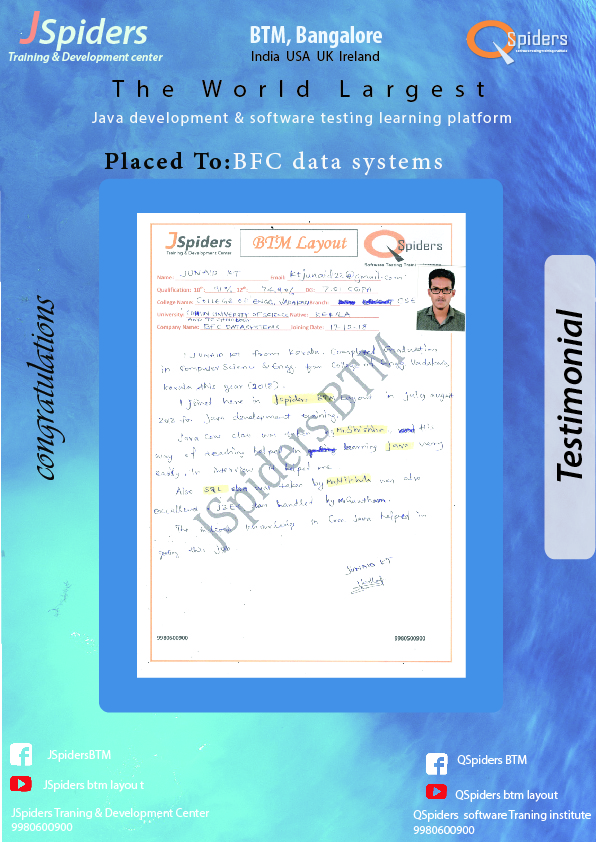 JSpiders
Training & Development center
BTM, Bangalore
India USA UK Ireland
QSpiders
The World Largest
Java development & software testing learning platform
Placed To:BFC data systems
congratulations
Testimonial
JSpiders
Training & Development Center
BTM Layout
QSpiders
Name: JUNAID KT Email: ktjunaid22@gmail.com
Qualification: 10th:
College Name: COLLEGE OF ENGG, VADAKARA Branch: CSE
University: COCHIN UNIVERSITY OF SCIENCE Native: KERALA
AND TECHNOLOGY
Company Name: BFC DATASYSTEMS Joining Date: 17-12-18
JUNAID KT from Kerala. Completed Graduation
in Computer Science & Engg from College of Engg Vadakara,
Kerala this year (2018).
I joined here in Jspiders BTM Layout in july august
2018 for Java development training.
Java Core class was taken by His
way of teaching helped in learning java very
easily, In interview it helped me.
Also SQL was taken by was also
excellent. J2EE was handled by
The in Core Java helped in
getting this job
JUNAID KT
JSpiders BTM
9980600900 9980500900
JSpidersBTM
JSpiders btm layou t
JSpiders Traning & Development Center
9980600900
QSpiders BTM
QSpiders btm layout
QSpiders software Traning institute
9980600900